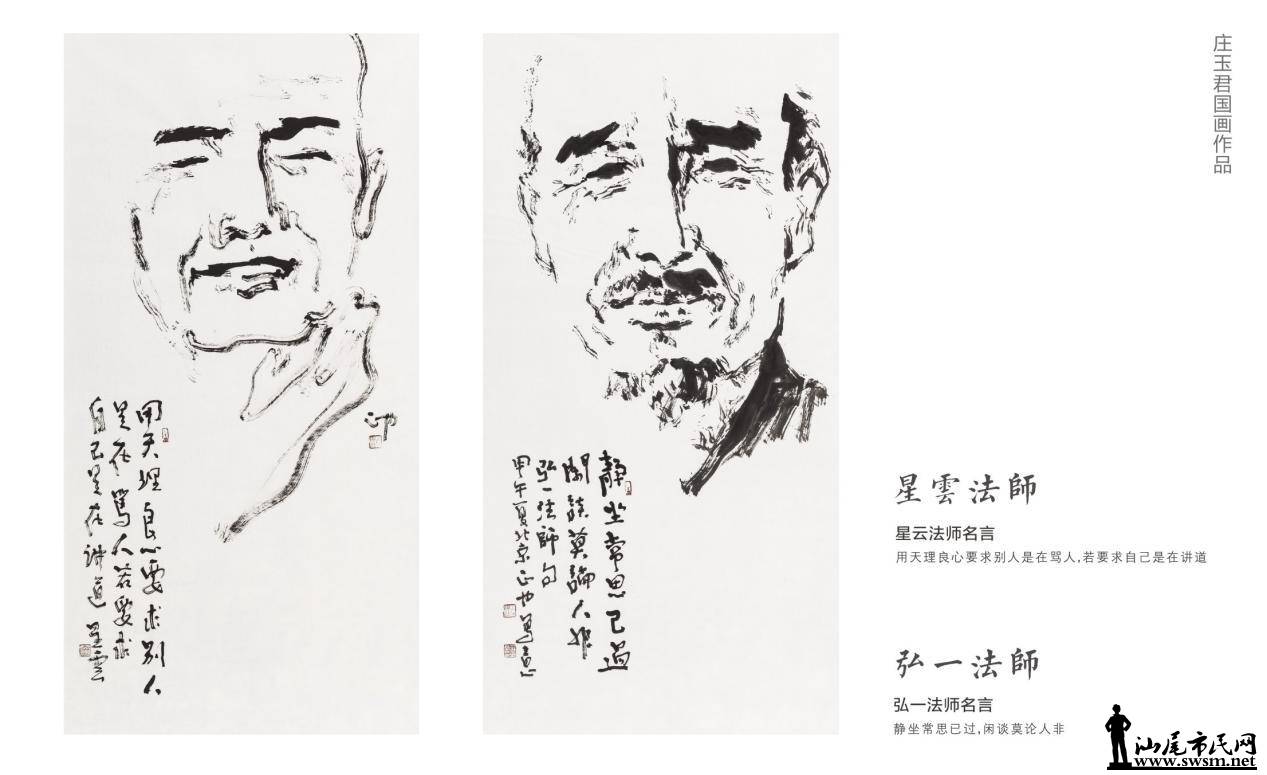 用天理良心要求别人
是在骂人若要求
自己是在讲道 星雲
正中
静坐常思己过
閒談莫論人非
弘一法師句
甲午夏北京正中写意
庄玉君国画作品
星雲法師
星云法师名言
用天理良心要求别人是在骂人,若要求自己是在讲道
弘一法師
弘一法师名言
静坐常思已过,闲谈莫论人非
汕尾市民网
www.swsm.net